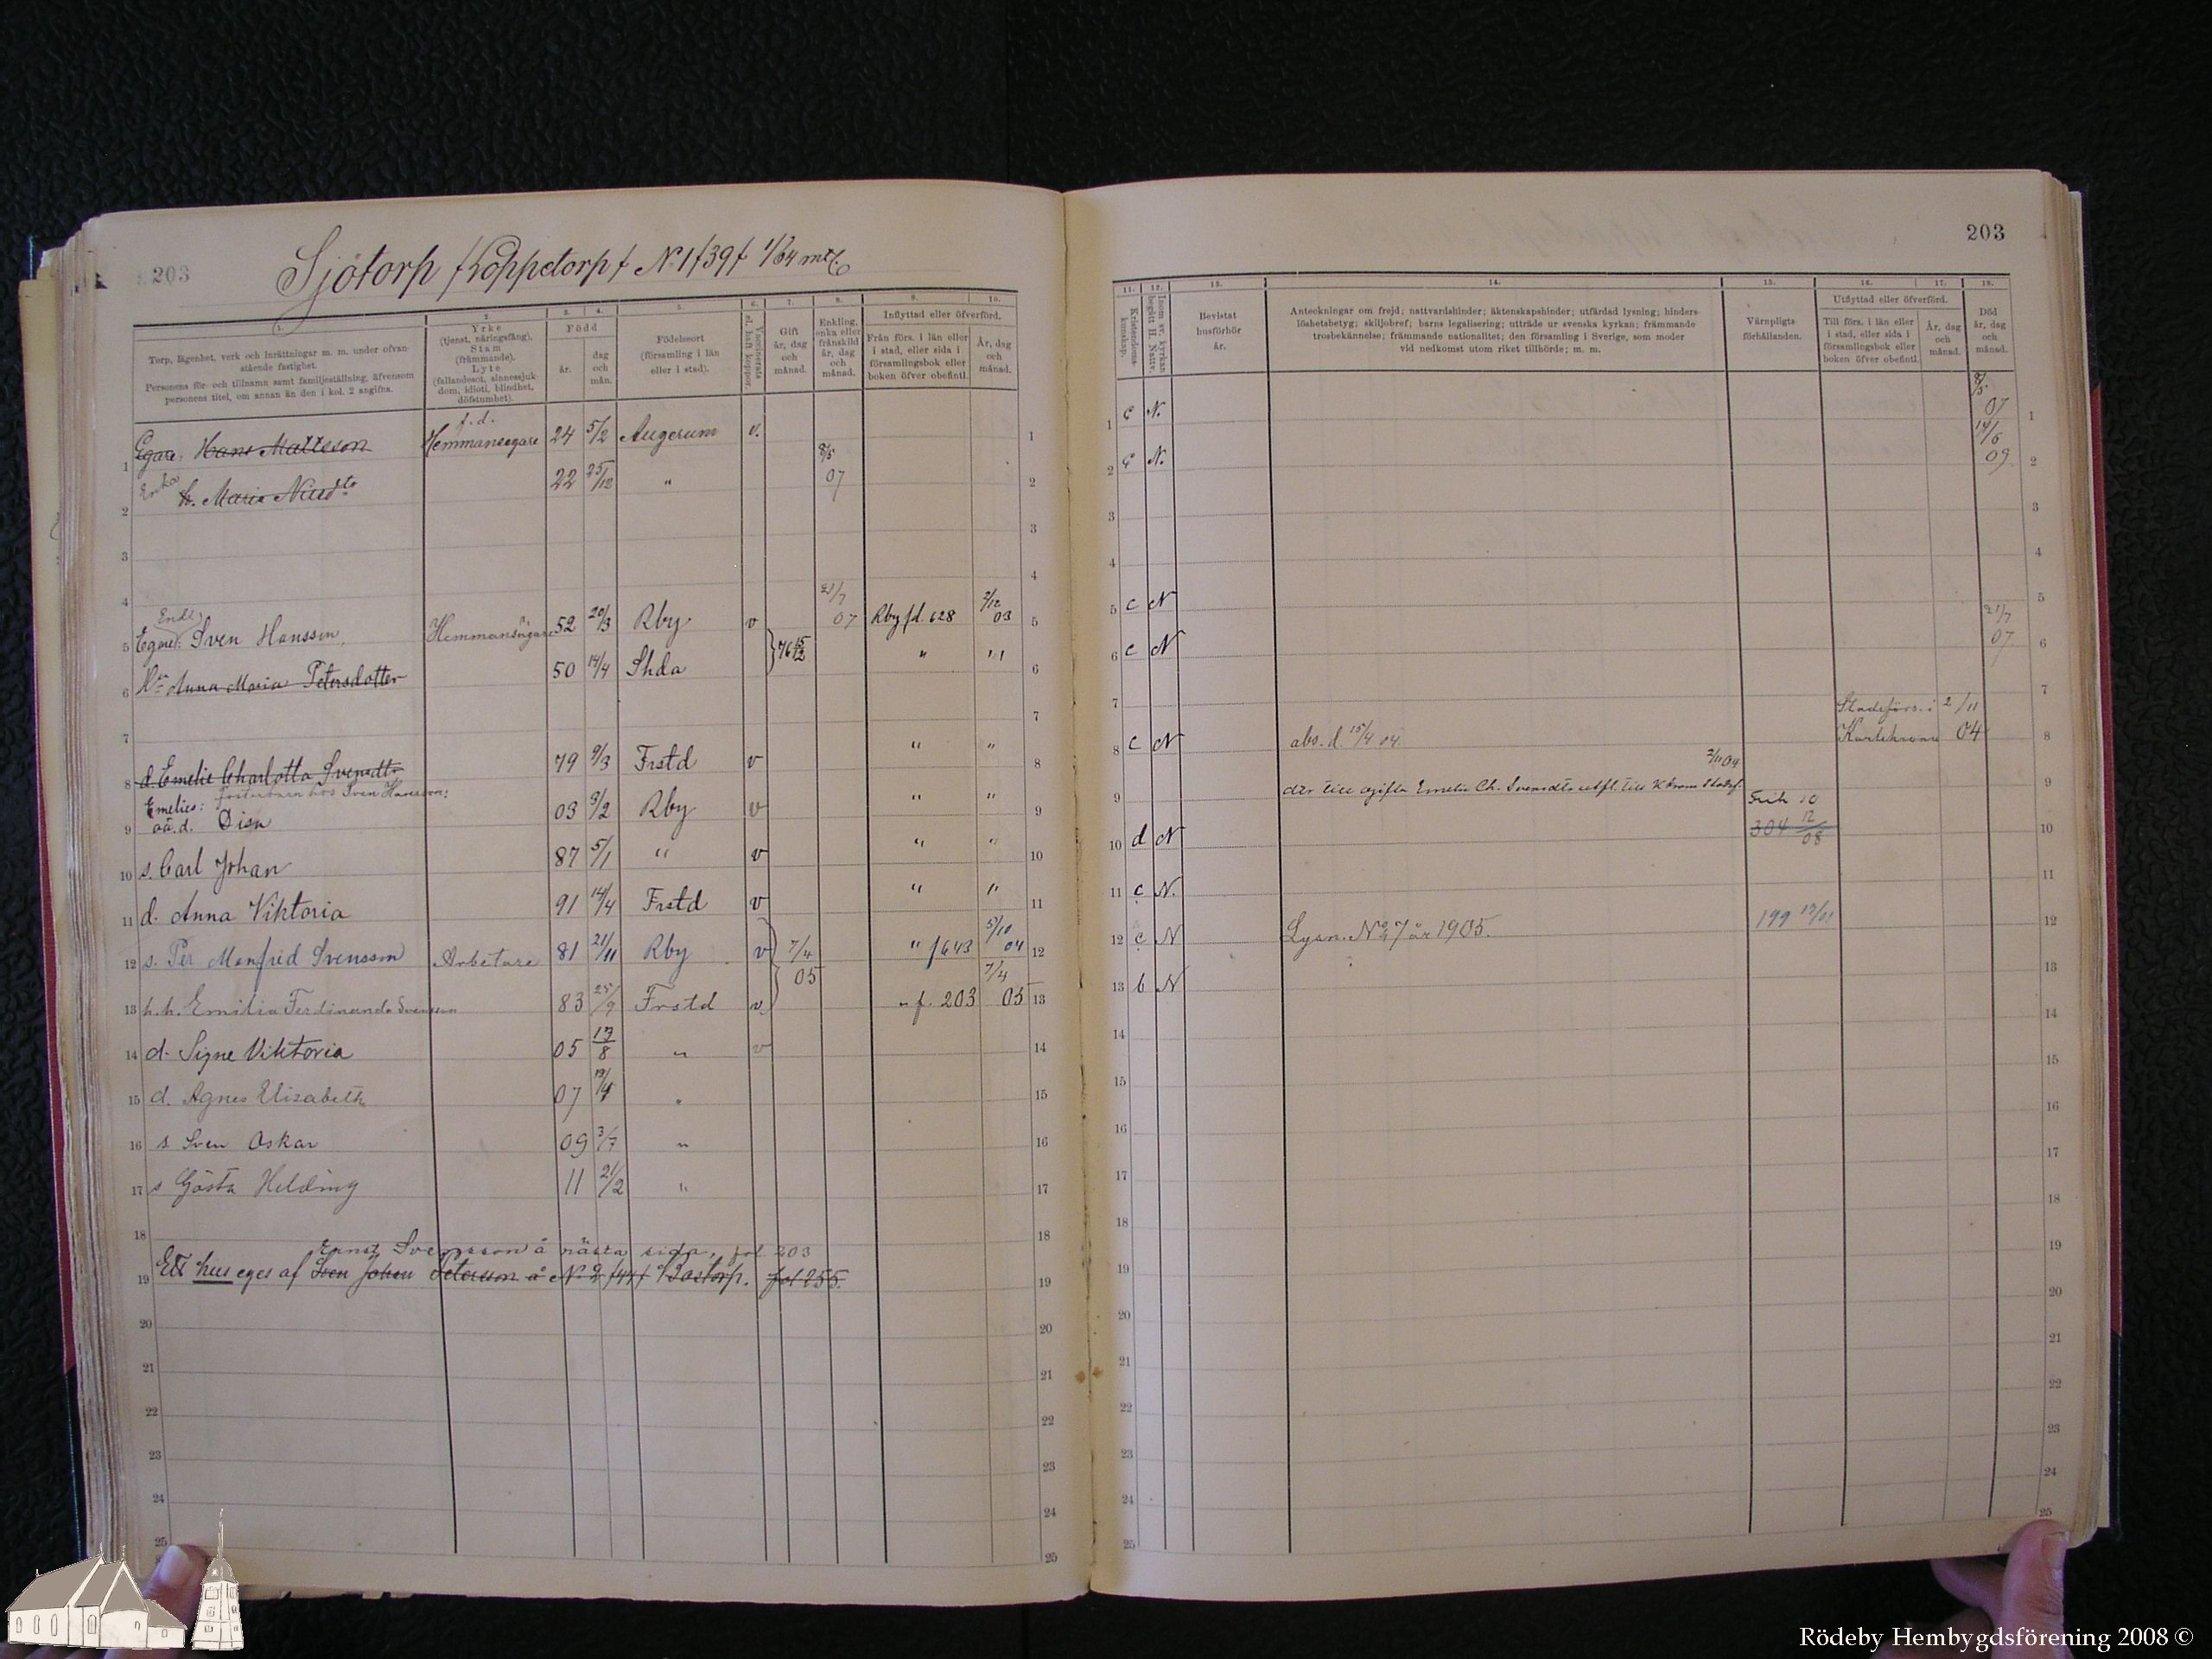 203
Sjötorp /Koppetorp/ No 1 /39/ 1/64 mtl.
1. 2. 3. 4. 5. 6. 7. 8. 9. 10.
Torp, lägenhet, verk och inrättningar m. m. under ofvan-
stående fastighet.
Personens för- och tillnamn samt familjeställning, äfvensom
personens titel, om annan än den i kol. 2 angifna.
Yrke
(tjenst, näringsfång),
Stam
(främmande),
Lyte
(fallandesot, sinnessjuk-
dom, idioti, blindhet,
döfstumhet).
Född
år.
dag
och
mån.
Födelseort
(församling i län
eller i stad).
Vaccinerats
el. haft koppor.
Gift
år, dag
och
månad.
Enkling,
enka eller
frånskild
år, dag
och
månad.
Inflyttad eller öfverförd.
Från förs. i län eller
i stad, eller sida i
församlingsbok eller
boken öfver obefintl.
År, dag
och
månad.
f.d.
1 Egare. Hans Mattsson Hemmansegare 24 5/2 Augerum v. 1
Enka 8/5
2 h. Maria Nilsdtr 22 25/12 " 07 2
3 3
4 4
Enkl. 21/7 2/12
5 Egare: Sven Hansson Hemmansägare 52 20/3 Rby v 07 Rby fd. 628 03 5
6 Hu Anna Maria Petersdotter 50 14/4 Shda 76 15/12 " " 6
7 7
8 d. Emelie Charlotta Svensdtr 79 9/3 Frstd v " " 8
Emelies: Fosterbarn hos Sven Hansson:
9 oä.d. Disa 03 9/2 Rby v " " 9
10 s. Carl Johan 87 5/1 " v " " 10
11 d. Anna Viktoria 91 14/4 Frstd v " " 11
12 s. Per Manfred Svensson Arbetare 81 21/11 Rby v 7/4 05 " f 643 5/10 04 12
13 h.h. Emilia Ferdinanda Svensson 83 25/9 Frstd v " f. 203 7/4 05 13
14 d. Signe Viktoria 05 17/8 " v 14
15 d. Agnes Elisabeth 07 19/4 " 15
16 s Sven Oskar 09 3/7 " 16
17 s Gösta Helding 11 21/2 " 17
18 Ernst Svensson å nästa sida, fol 203 18
19 Ett hus eges af Sven Johan Peterson å No 2 /44/ Bostorp. fol 255. 19
20 20
21 21
22 22
23 23
24 24
25 25
203
11. 12. 13. 14. 15. 16. 17. 18.
Kristendoms-
kunskap.
Inom sv. kyrkan
begått H. Nattv.
Bevistat
husförhör
år.
Anteckningar om frejd; nattvardshinder; äktenskapshinder; utfärdad lysning; hinders-
löshetsbetyg; skiljobref; barns legalisering; utträde ur svenska kyrkan; främmande
trosbekännelse; främmande nationalitet; den församling i Sverige, som moder
vid nedkomst utom riket tillhörde; m. m.
Värnpligts
förhållanden.
Utflyttad eller öfverförd.
Till förs. i län eller
i stad, eller sida i
församlingsbok eller
boken öfver obefintl.
År, dag
och
månad.
Död
år, dag
och
månad.
1 c N. 8/5 07 1
2 c N. 14/6 09 2
3 3
4 4
5 c N 5
6 c N 21/7 07. 6
7 Stadsförs. i 2/11 7
8 c N abs. d. 15/4 04. Karlskrona 04 8
2/11 04
9 dtr till ogifta Emelie Ch. Svensdtr utfl. till Krona Stadsf. 9
10 d N 304 12/08 10
11 c N. 11
12 c N Lysn. No 27 år 1905. 199 12
13 b N 13
14 14
15 15
16 16
17 17
18 18
19 19
20 20
21 21
22 22
23 23
24 24
25 25
Rödeby Hembygdsförening 2008 ©